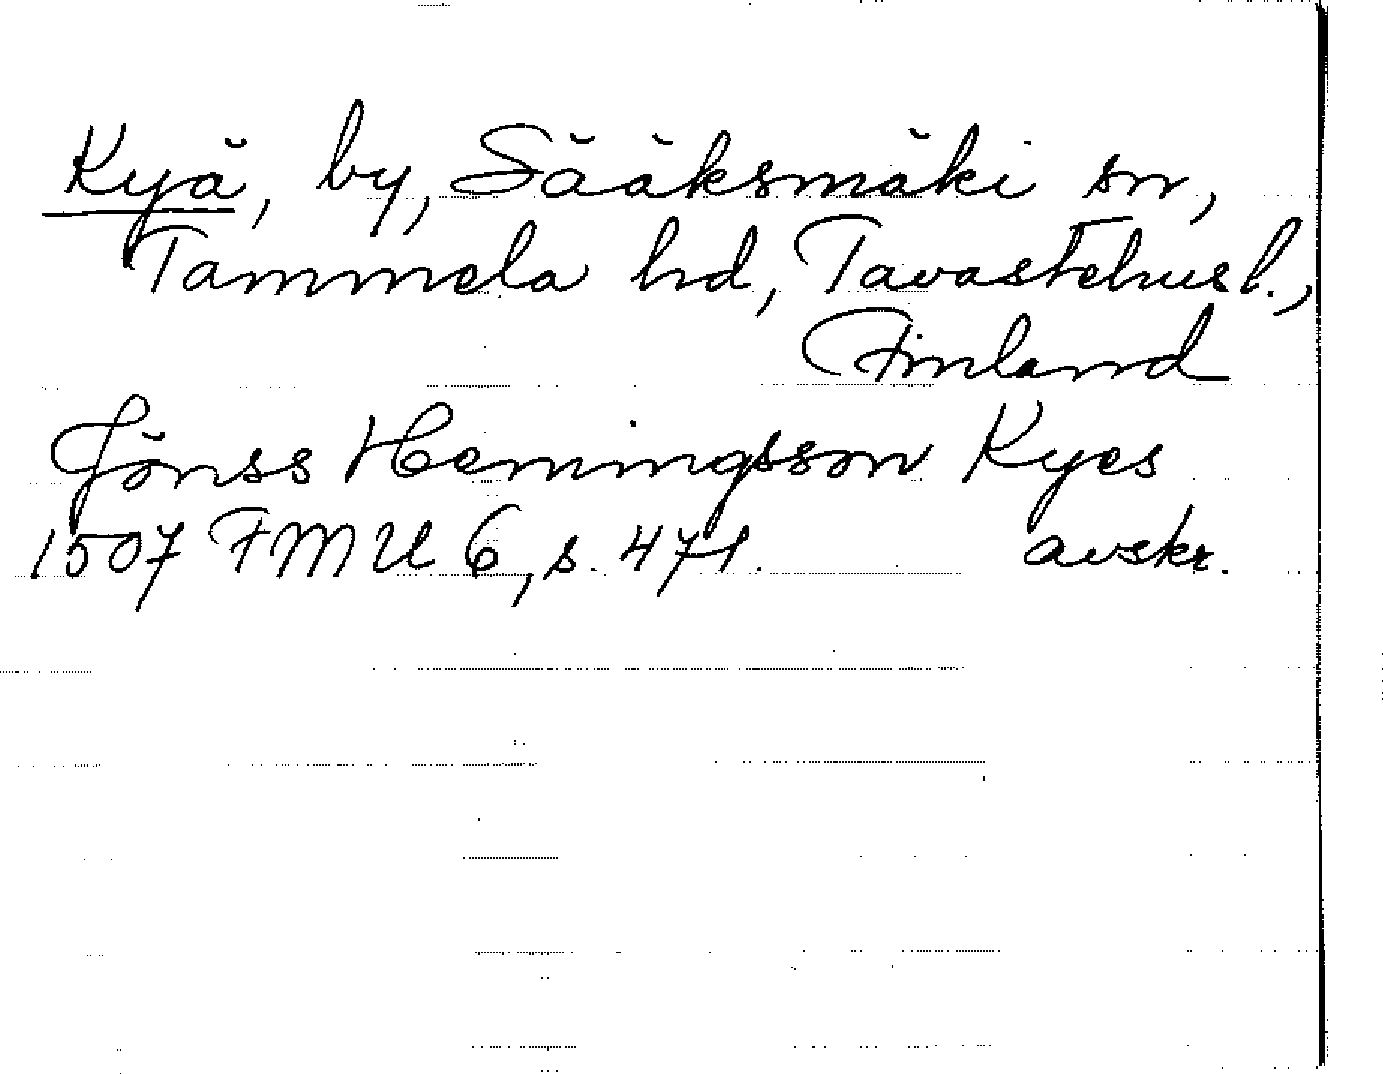 Kyä, by, Sääksmäki sn,
Tammela hd, Tavastehus l.,
Finland
Jönss Hemingsson Kyes
1507 FMU 6, s. 471. avskr.